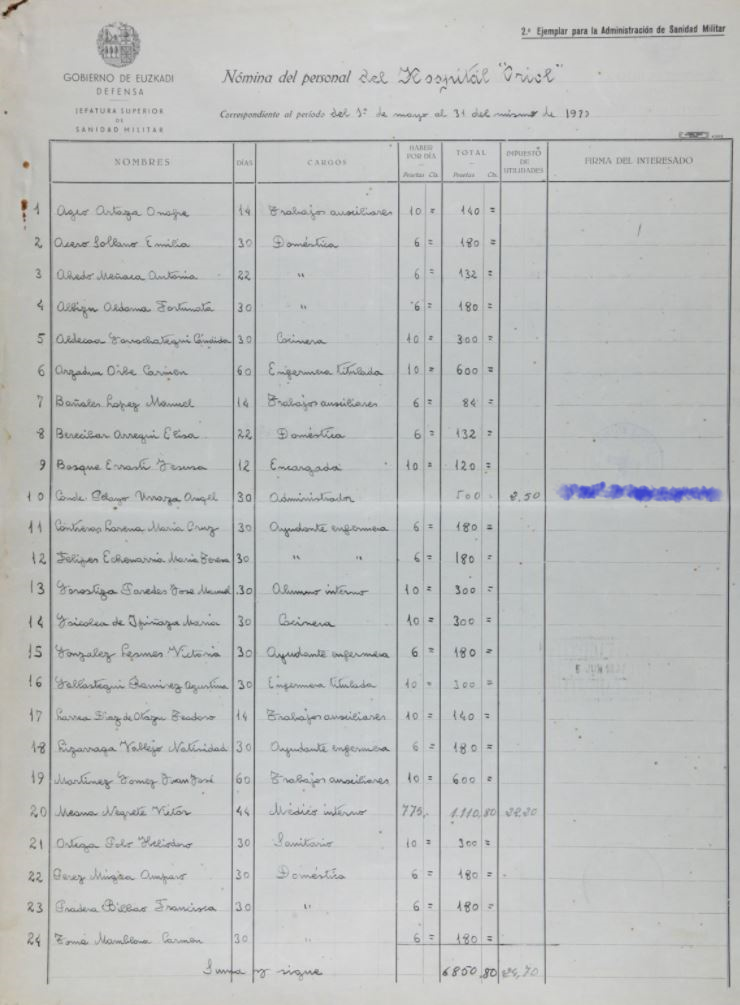 2.º Ejemplar para la Administración de Sanidad Militar
GOBIERNO DE EUZKADI
DEFENSA
JEFATURA SUPERIOR
DE
SANIDAD MILITAR
Nómina del personal del Hospital "Oriol"
Correspondiente al período del 1º de mayo al 31 del mismo de 193
NOMBRES DÍAS CARGOS HABER POR DÍA Pesetas Cts. TOTAL Pesetas Cts. IMPUESTO DE UTILIDADES FIRMA DEL INTERESADO
1 Artaza Onofre 14 Trabajos auxiliares 10 = 140 =
2 Acero Sollano Emilia 30 Doméstica 6 = 180 =
3 Ahedo Meñaca Antonia 22 " 6 = 132 =
4 Aldama Fortunata 30 " 6 = 180 =
5 Aldecoa Gorochategui Cándida 30 Cocinera 10 = 300 =
6 Arzadun Oribe Carmen 60 Enfermera titulada 10 = 600 =
7 Bañales Lopez Manuel 14 Trabajos auxiliares 6 = 84 =
8 Berecibar Arregui Elisa 22 Doméstica 6 = 132 =
9 Bosque Errasti Jesusa 12 Encargada 10 = 120 =
10 Conde-Pelayo Urraza Angel 30 Administrador 500 2,50
11 Contreras Lorena Maria Cruz 30 Ayudante enfermera 6 = 180 =
12 Felipes Echevarria Maria Teresa 30 " " 6 = 180 =
13 Gorostiza Paredes Jose Manuel 30 Alumno interno 10 = 300 =
14 Goicolea de Ipiñaza Maria 30 Cocinera 10 = 300 =
15 Gonzalez Lesmes Victoria 30 Ayudante enfermera 6 = 180 =
16 Gallastegui Ramirez Agustina 30 Enfermera titulada 10 = 300 =
17 Larrea Diaz de Otazu Teodoro 14 Trabajos auxiliares 10 = 140 =
18 Lizarraga Vallejo Natividad 30 Ayudante enfermera 6 = 180 =
19 Martinez Gomez Juan José 60 Trabajos auxiliares 10 = 600 =
20 Negrete Victor 44 Médico interno 775, 1.110,80 22,20
21 Ortega Polo Heliodoro 30 Sanitario 10 = 300 =
22 Perez Amparo 30 Doméstica 6 = 180 =
23 Pradera Bilbao Francisca 30 " 6 = 180 =
24 Tomé Carmen 30 " 6 = 180 =
Suma y sigue 6850,80 24,70